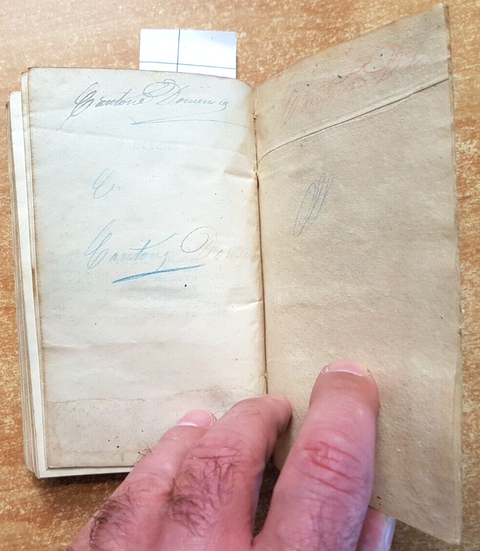 Cantone Domenico
C.
Cantone Domen
Cantone Do